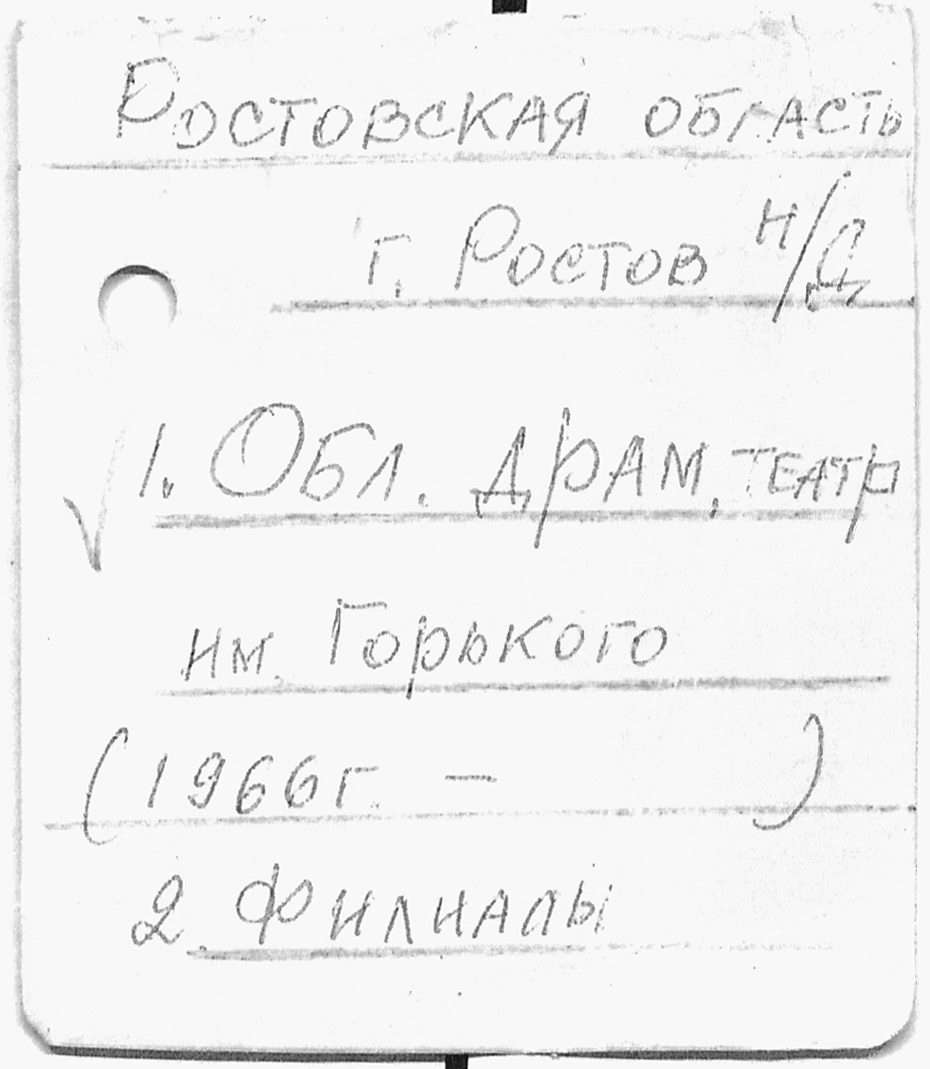 Ростовская область
г. Ростов н/Д
√ 1. Обл. драм. театр
им. Горького
(1966г. – )
2. Филиалы